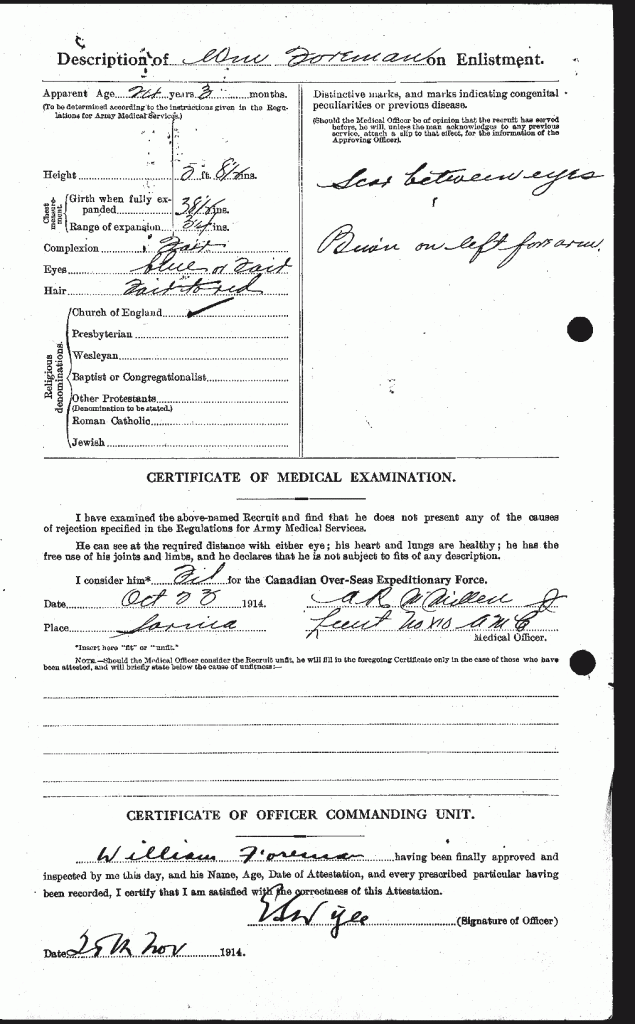 Description of Wm Foreman on Enlistment.
Apparent Age 24 years 3 months.
(To be determined according to the instructions given in the Regu-
lations for Army Medical Services.)
Height 5 ft. 8½ ins.
Chest measure-ment.
Girth when fully ex-
panded 38½ ins.
Range of expansion ins.
Complexion Fair
Eyes blue or Fair
Hair Fair to red
Religious denominations.
Church of England ✓
Presbyterian
Wesleyan
Baptist or Congregationalist
Other Protestants
(Denomination to be stated.)
Roman Catholic
Jewish
Distinctive marks, and marks indicating congenital
peculiarities or previous disease.
(Should the Medical Officer be of opinion that the recruit has served
before, he will, unless the man acknowledges to any previous
service, attach a slip to that effect, for the information of the
Approving Officer).
Scar between eyes
on left forearm.
CERTIFICATE OF MEDICAL EXAMINATION.
I have examined the above-named Recruit and find that he does not present any of the causes
of rejection specified in the Regulations for Army Medical Services.
He can see at the required distance with either eye; his heart and lungs are healthy; he has the
free use of his joints and limbs, and he declares that he is not subject to fits of any description.
I consider him* Fit for the Canadian Over-Seas Expeditionary Force.
Date Oct 23 1914.
Place Sarnia
Lieut AMC
Medical Officer.
*Insert here "fit" or "unfit."
NOTE.—Should the Medical Officer consider the Recruit unfit, he will fill in the foregoing Certificate only in the case of those who have
been attested, and will briefly state below the cause of unfitness:—
CERTIFICATE OF OFFICER COMMANDING UNIT.
William Foreman having been finally approved and
inspected by me this day, and his Name, Age, Date of Attestation, and every prescribed particular having
been recorded, I certify that I am satisfied with the correctness of this Attestation.
(Signature of Officer)
Date 25th Nov 1914.